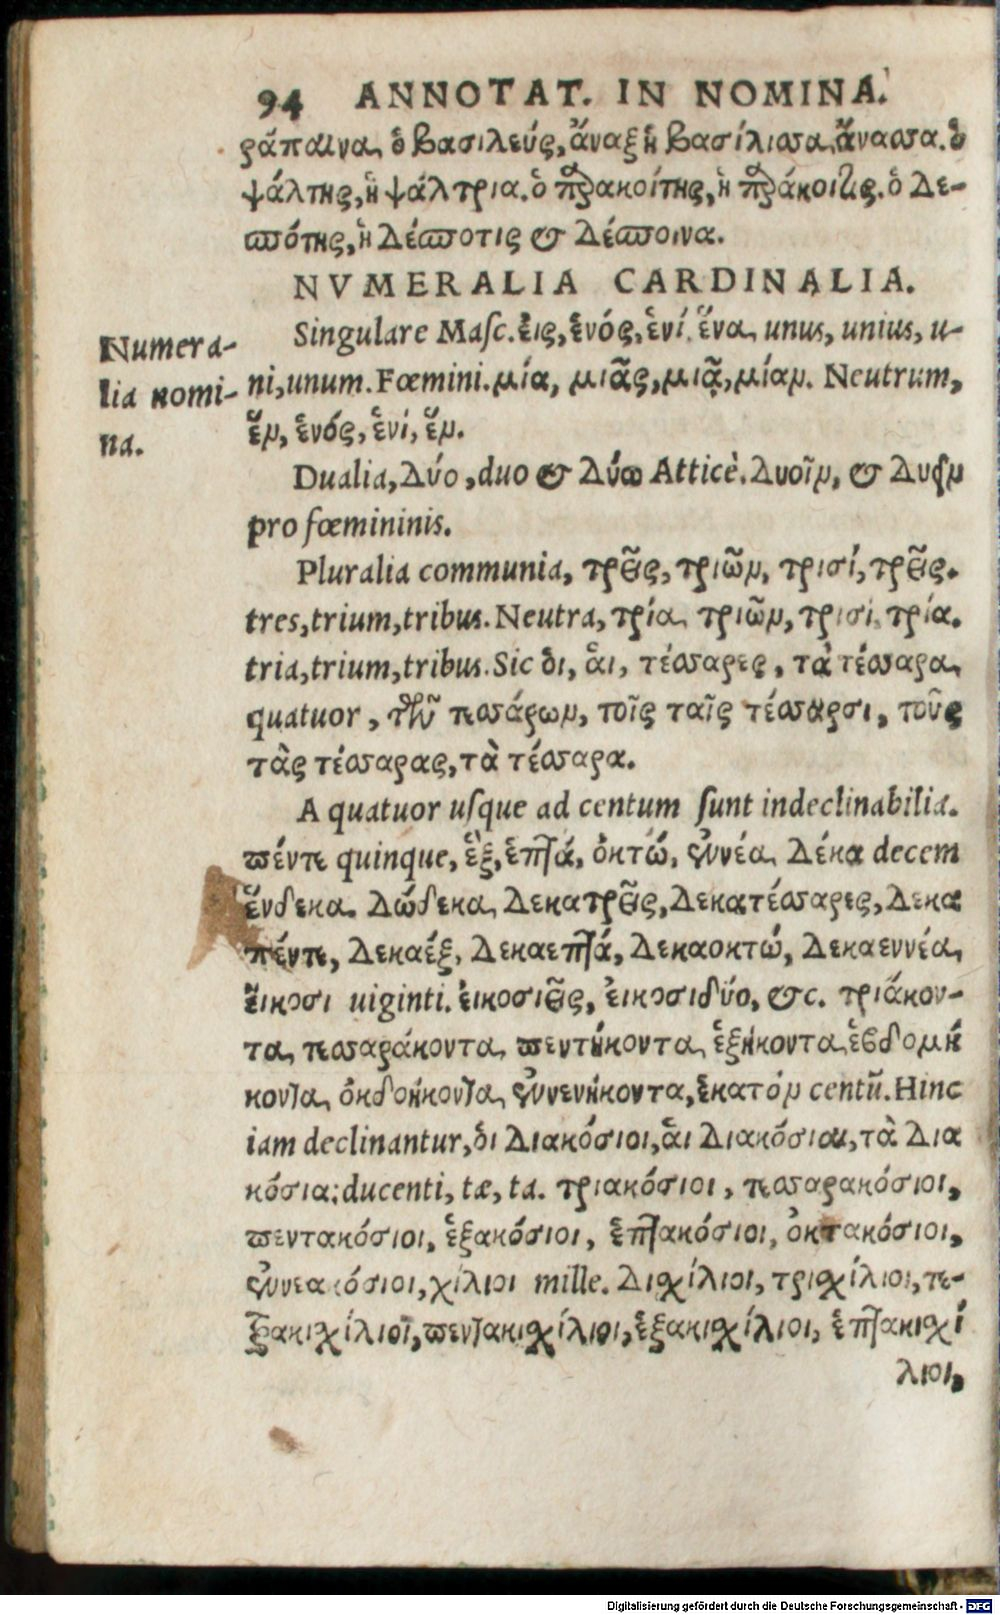 94 ANNOTAT. IN NOMINA.
ράπαινα, ὁ βασιλεύς, ἄναξ ἡ βασίλισσα, ἄνασσα. ὁ
ψάλτης, ἡ ψάλτρια. ὁ παρακοίτης, ἡ παράκοιτις. ὁ δε-
σπότης, ἡ δέσποτις & δέσποινα.
NVMERALIA CARDINALIA.
Numera-
lia nomi-
na.
Singulare Maſc. εἱς, ἑνός, ἑνί, ἕνα, unus, unius, u-
ni, unum. Fœmini. μία, μιᾶς, μιᾷ, μίαν. Neutrum,
ἕν, ἑνός, ἑνί, ἕν.
Dualia, δύο, duo & δύω Atticè. δυοῖν, & δυεῖν
pro fœmininis.
Pluralia communia, τρεῖς, τριῶν, τρισί, τρεῖς.
tres, trium, tribus. Neutra, τρία, τριῶν, τρισί, τρία.
tria, trium, tribus. Sic ὁι, ἁι, τέσσαρες, τὰ τέσσαρα,
quatuor, τῶν τεσσάρων, τοῖς ταῖς τέσσαρσι, τοῦς
τὰς τέσσαρας, τὰ τέσσαρα.
A quatuor uſque ad centum ſunt indeclinabilia.
πέντε quinque, ἕξ, ἑπτά, ὀκτώ, ἐννέα, δέκα decem
ἕνδεκα. δώδεκα, δεκατρεῖς, δεκατέσσαρες, δεκα
πέντε, δεκαέξ, δεκαεπτά, δεκαοκτώ, δεκαεννέα,
ἔικοσι uiginti. ἐικοσιεῖς, ἐικοσιδύο, &c. τριάκον-
τα, τεσσαράκοντα, πεντήκοντα, ἑξήκοντα, ἑβδομή
κοντα, ὀκδοήκοντα, ἐννενήκοντα, ἑκατόν centũ. Hinc
iam declinantur, ὁι διακόσιοι, ἁι διακόσιαι, τὰ δια
κόσια: ducenti, tæ, ta. τριακόσιοι, τεσσαρακόσιοι,
πεντακόσιοι, ἑξακόσιοι, ἑπτακόσιοι, ὀκτακόσιοι,
ἐννεακόσιοι, χίλιοι mille. δισχίλιοι, τρισχίλιοι, τε-
τρακισχίλιοι, πεντακισχίλιοι, ἑξακισχίλιοι, ἑπτακισχί
λιοι,
Digitalisierung gefördert durch die Deutsche Forschungsgemeinschaft - DFG